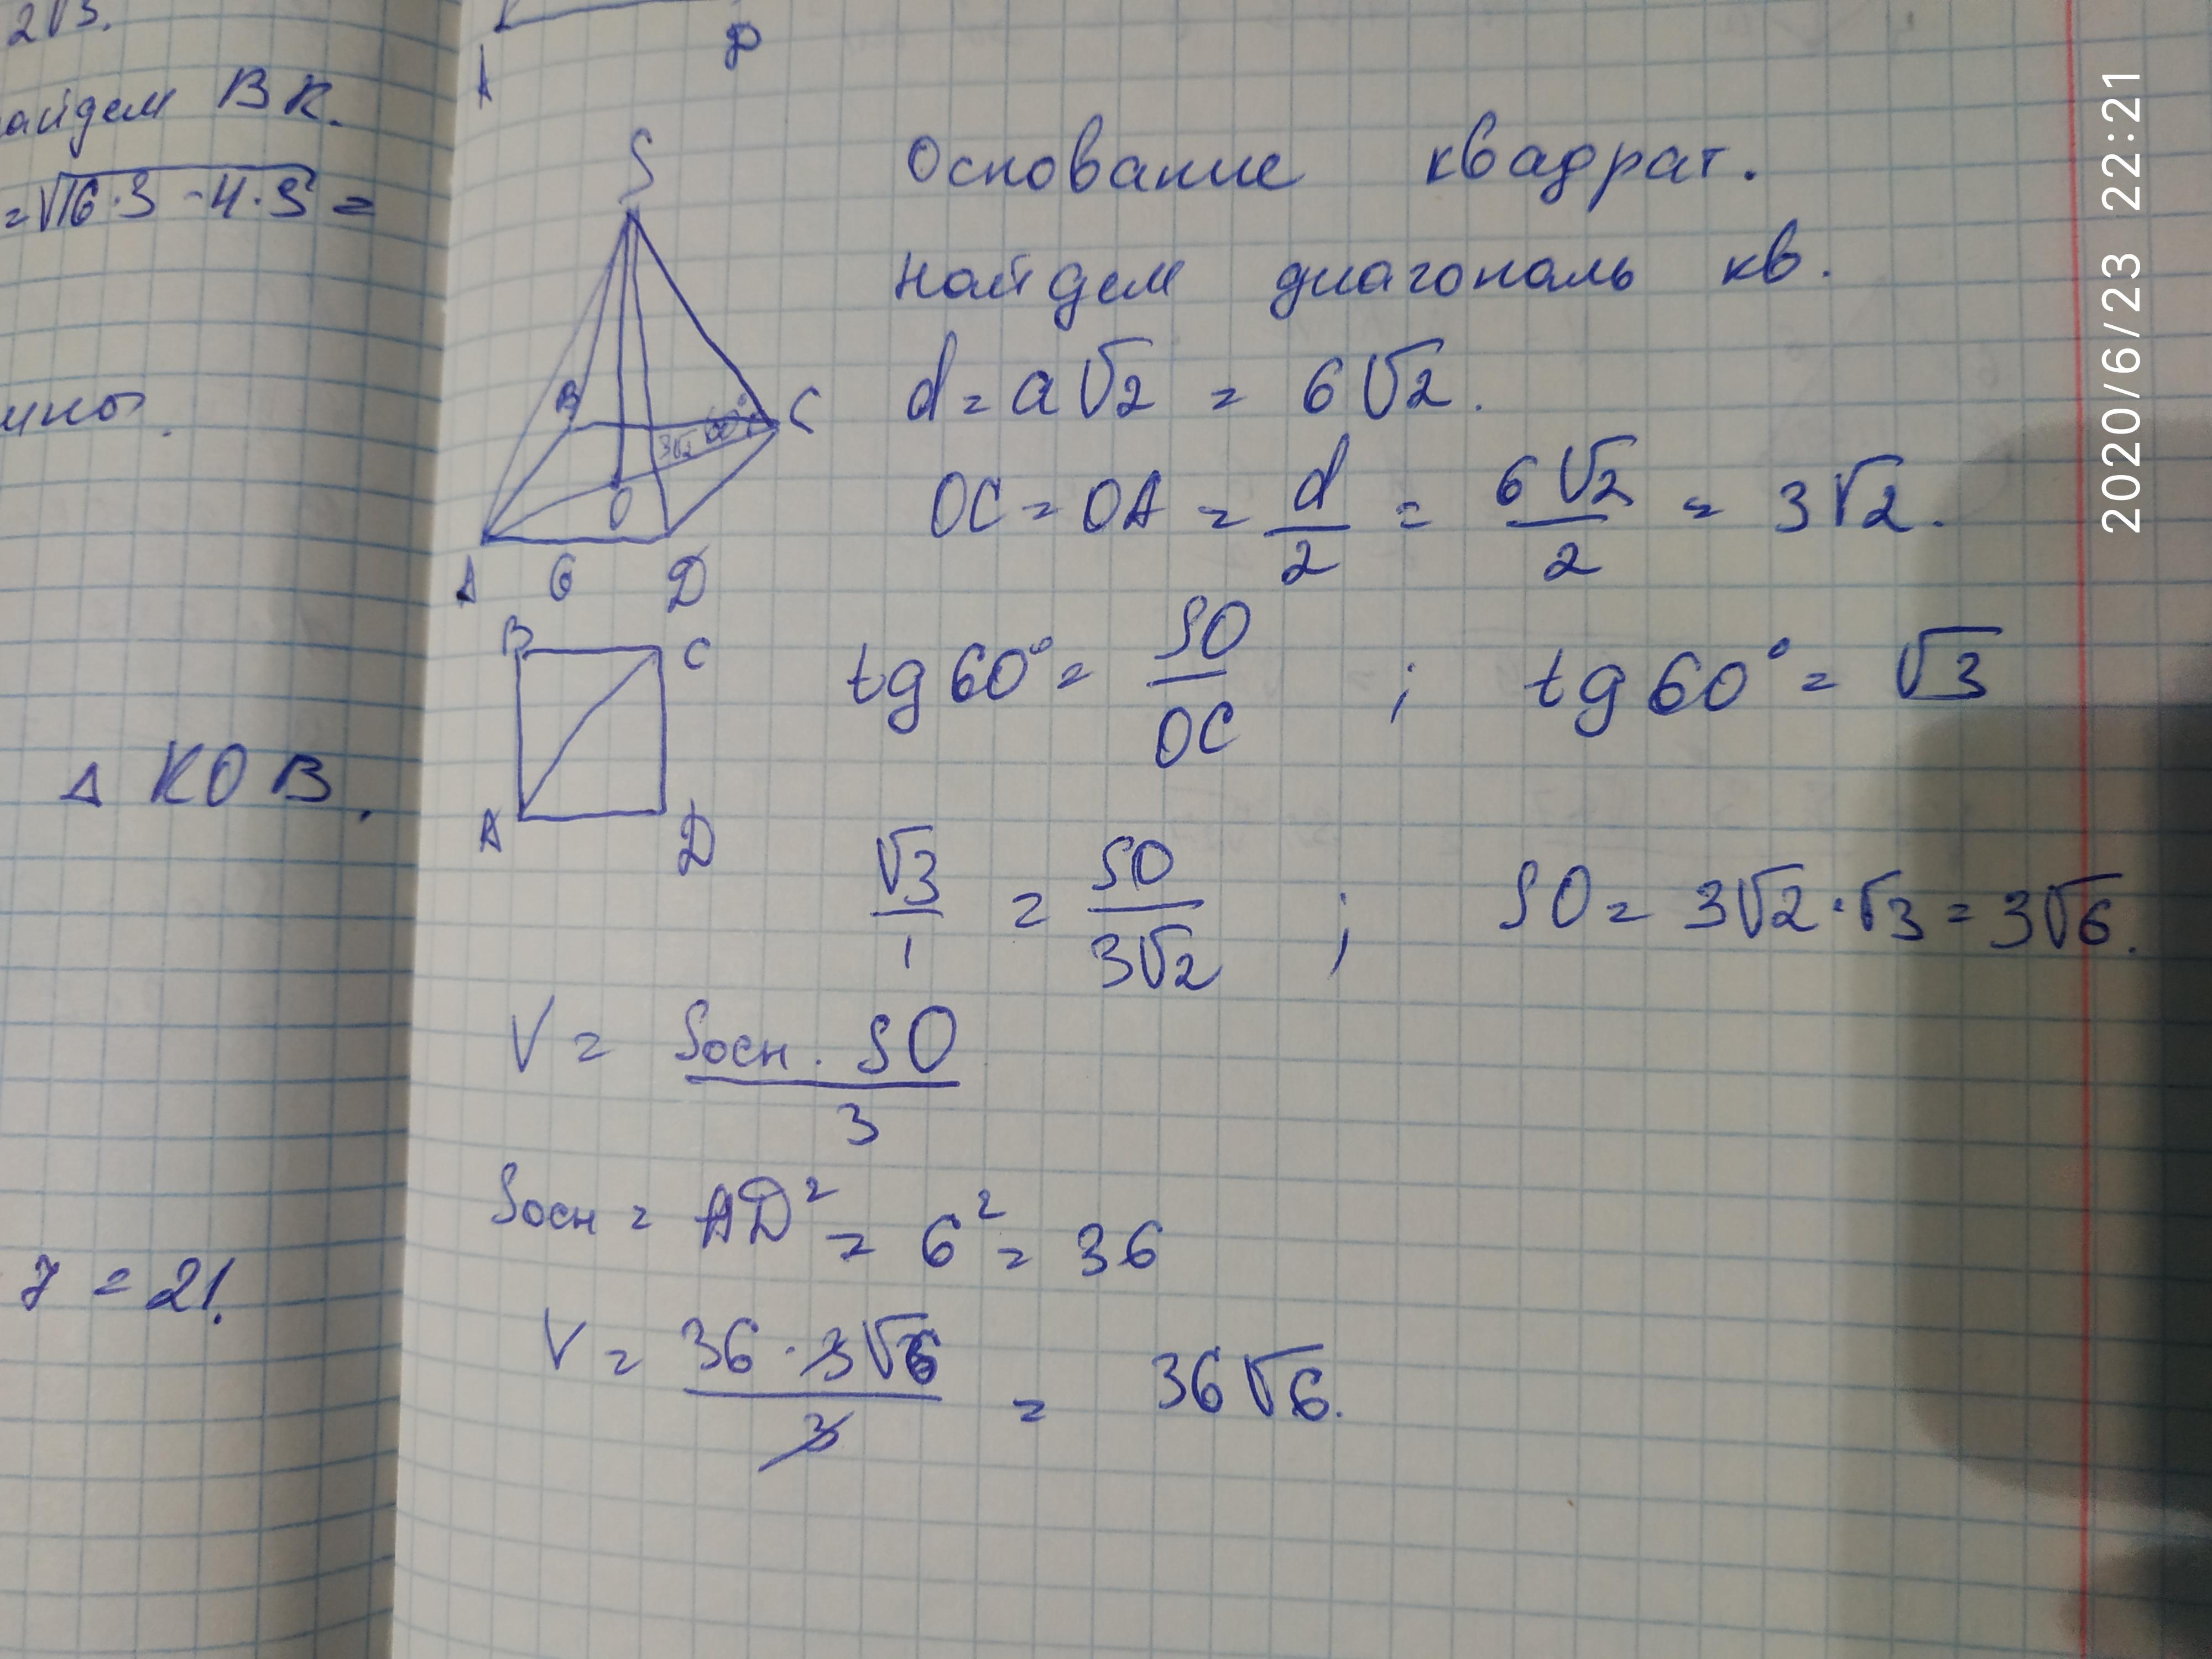 2√3.
айдем ВК.
=√16·3 - 4·3 =
мно.
Δ КОВ.
7 = 21.
A
D
S
B
C
3√2
60°
O
A
6
D
B
C
A
D
Основание квадрат.
Найдем диагональ кв.
d = a√2 = 6√2.
OC = OA = d/2 = 6√2/2 = 3√2.
tg 60° = SO/OC ; tg 60° = √3
√3/1 = SO/3√2 ; SO = 3√2·√3 = 3√6.
V = Sосн. SO/3
Sосн = AD² = 6² = 36
V = 36·3√6/3 = 36√6.
2020/6/23 22:21